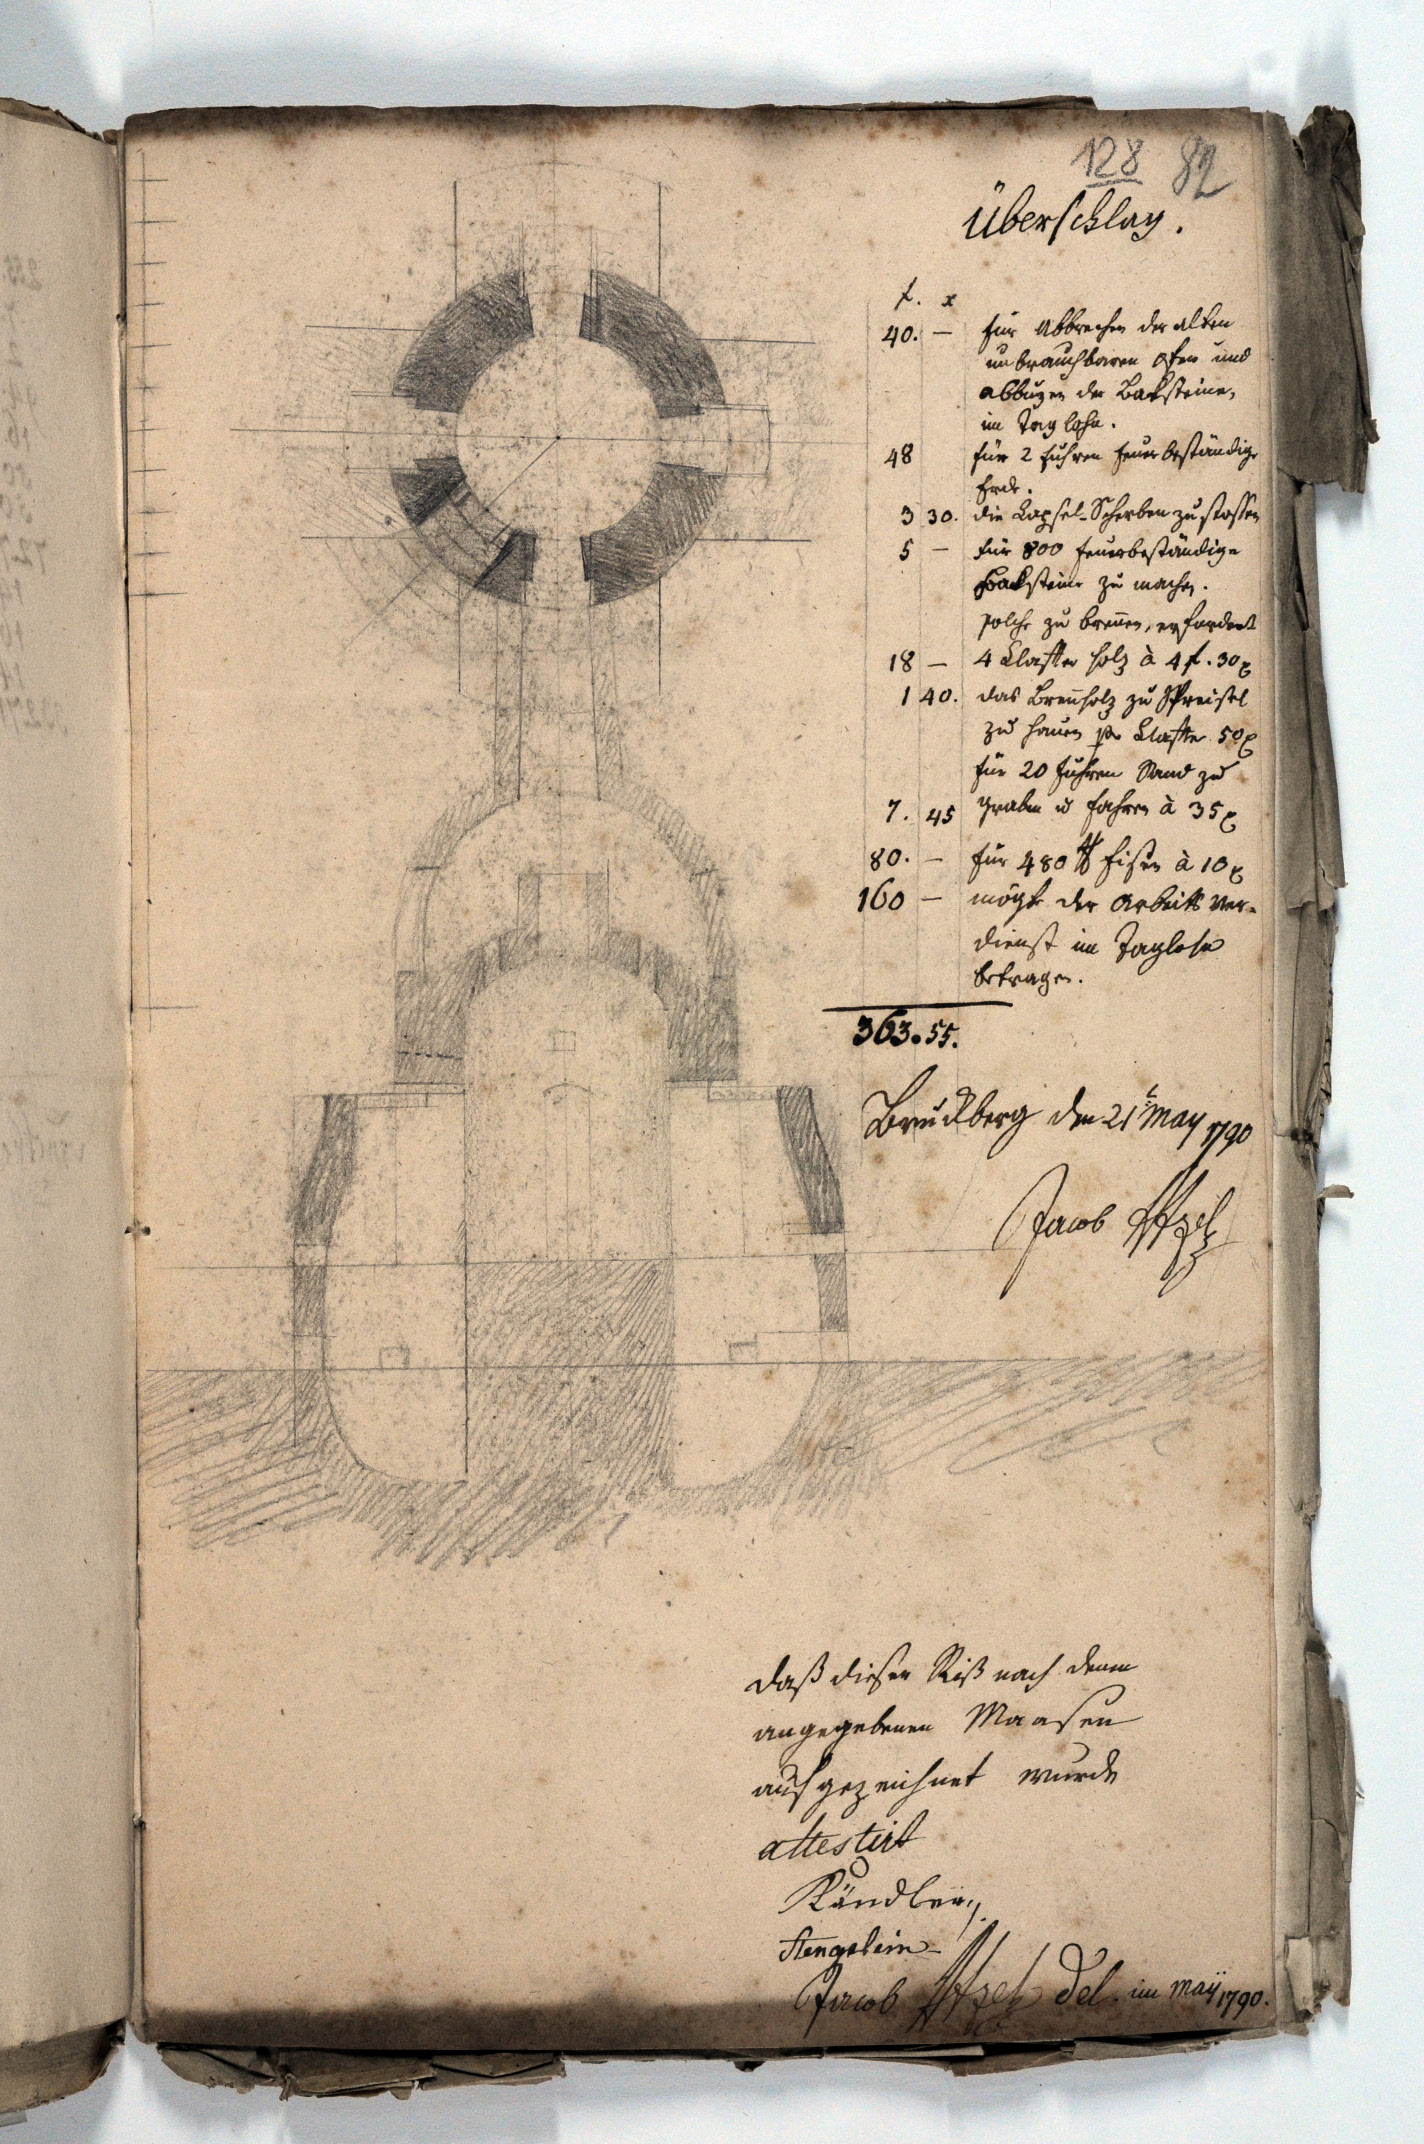 128 82
Überschlag.
f. x
40. — für Abbrechen der alten
unbrauchbaren Ofen und
abbuzen der Backsteine,
im Taglohn.
48 für 2 Fuhren feuerbeständige
Erde.
3 30. die Kapsel-Scherben zu stossen
5 — für 800 feuerbeständige
Backsteine zu machen.
solche zu brennen, erfordert
18 — 4 Klafter holz à 4 f. 30 x
1 40. das Brennholz zu Spreisel
zu hauen pr Klafter 50 x
für 20 Fuhren Sand zu
7. 45 graben u fahren à 35 x
80. — für 480 ℔ Eisen à 10 x
160 — mögte der Arbeits Ver-
dienst im Taglohn
betragen.
363. 55.
Bruckberg den 21t May 1790
Jacob
daß dieser Riß nach denen
angegebenen Maasen
aufgezeichnet wurde
attestirt
Kändler
Stengelein
Jacob del. im Maÿ 1790.